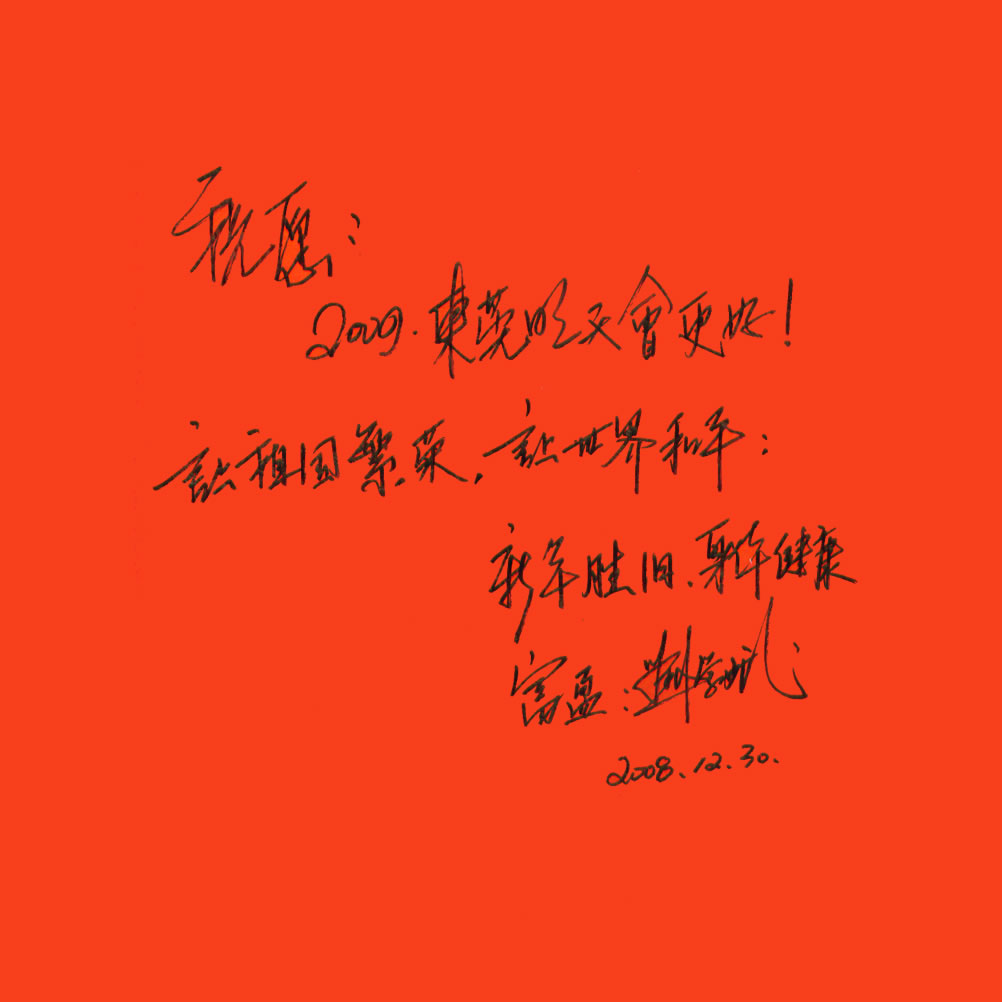 祝愿:
2009.東莞明天會更好!
讓祖国繁荣,讓世界和平:
新年胜旧.身体健康
富盈:
2008.12.30.